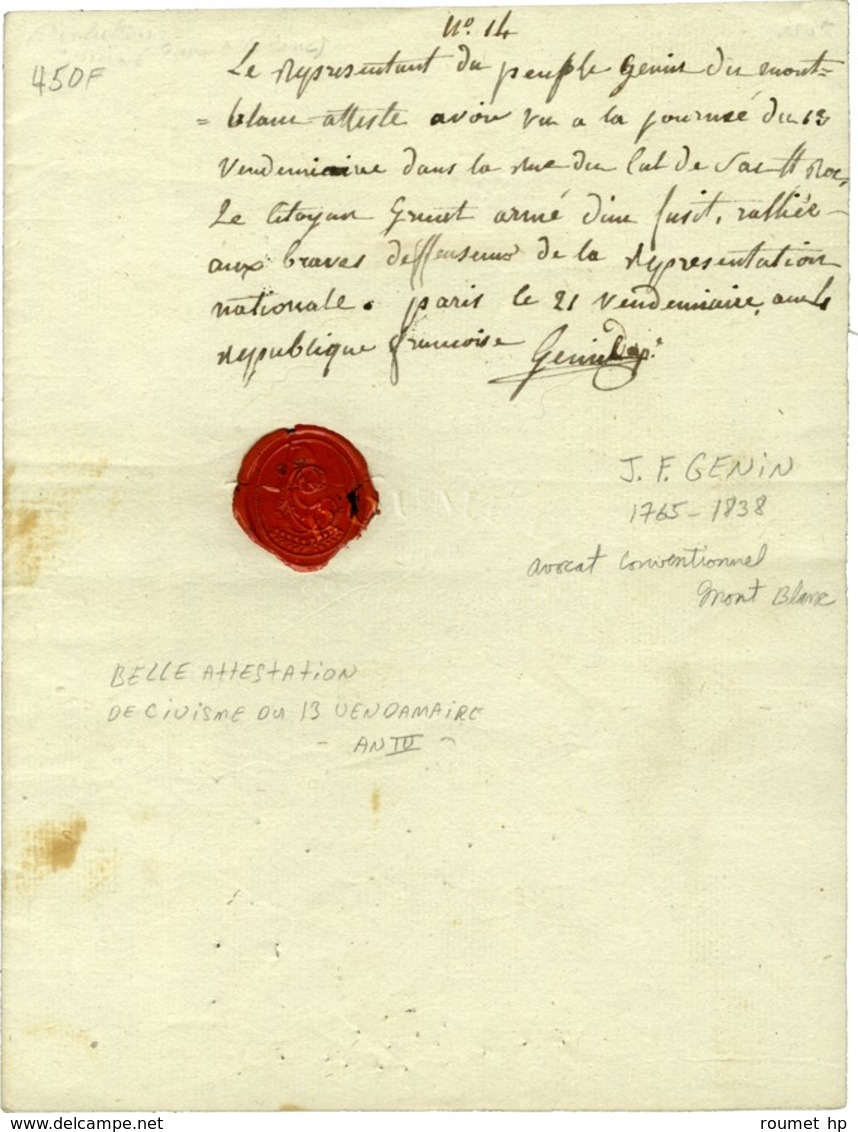 N.º 14
450F
Le Representant du peuple Genin du mont=
= blanc atteste avoir vu a la journeé du 13
Vendemiaire dans la rue du Cul de Sac St Roc,
Le Citoyan armé d'un fusit, ralliée
aux braves deffenseurs de la Representation
nationale. paris le 21 Vendemiaire, an 4
Republique francoise Genin Dep.é
J. F. GENIN
1765-1838
avocat conventionnel
Mont Blanc
BELLE ATTESTATION
DE CIVISME DU 13 VENDAMAIRE
- AN IV -
roumet hp